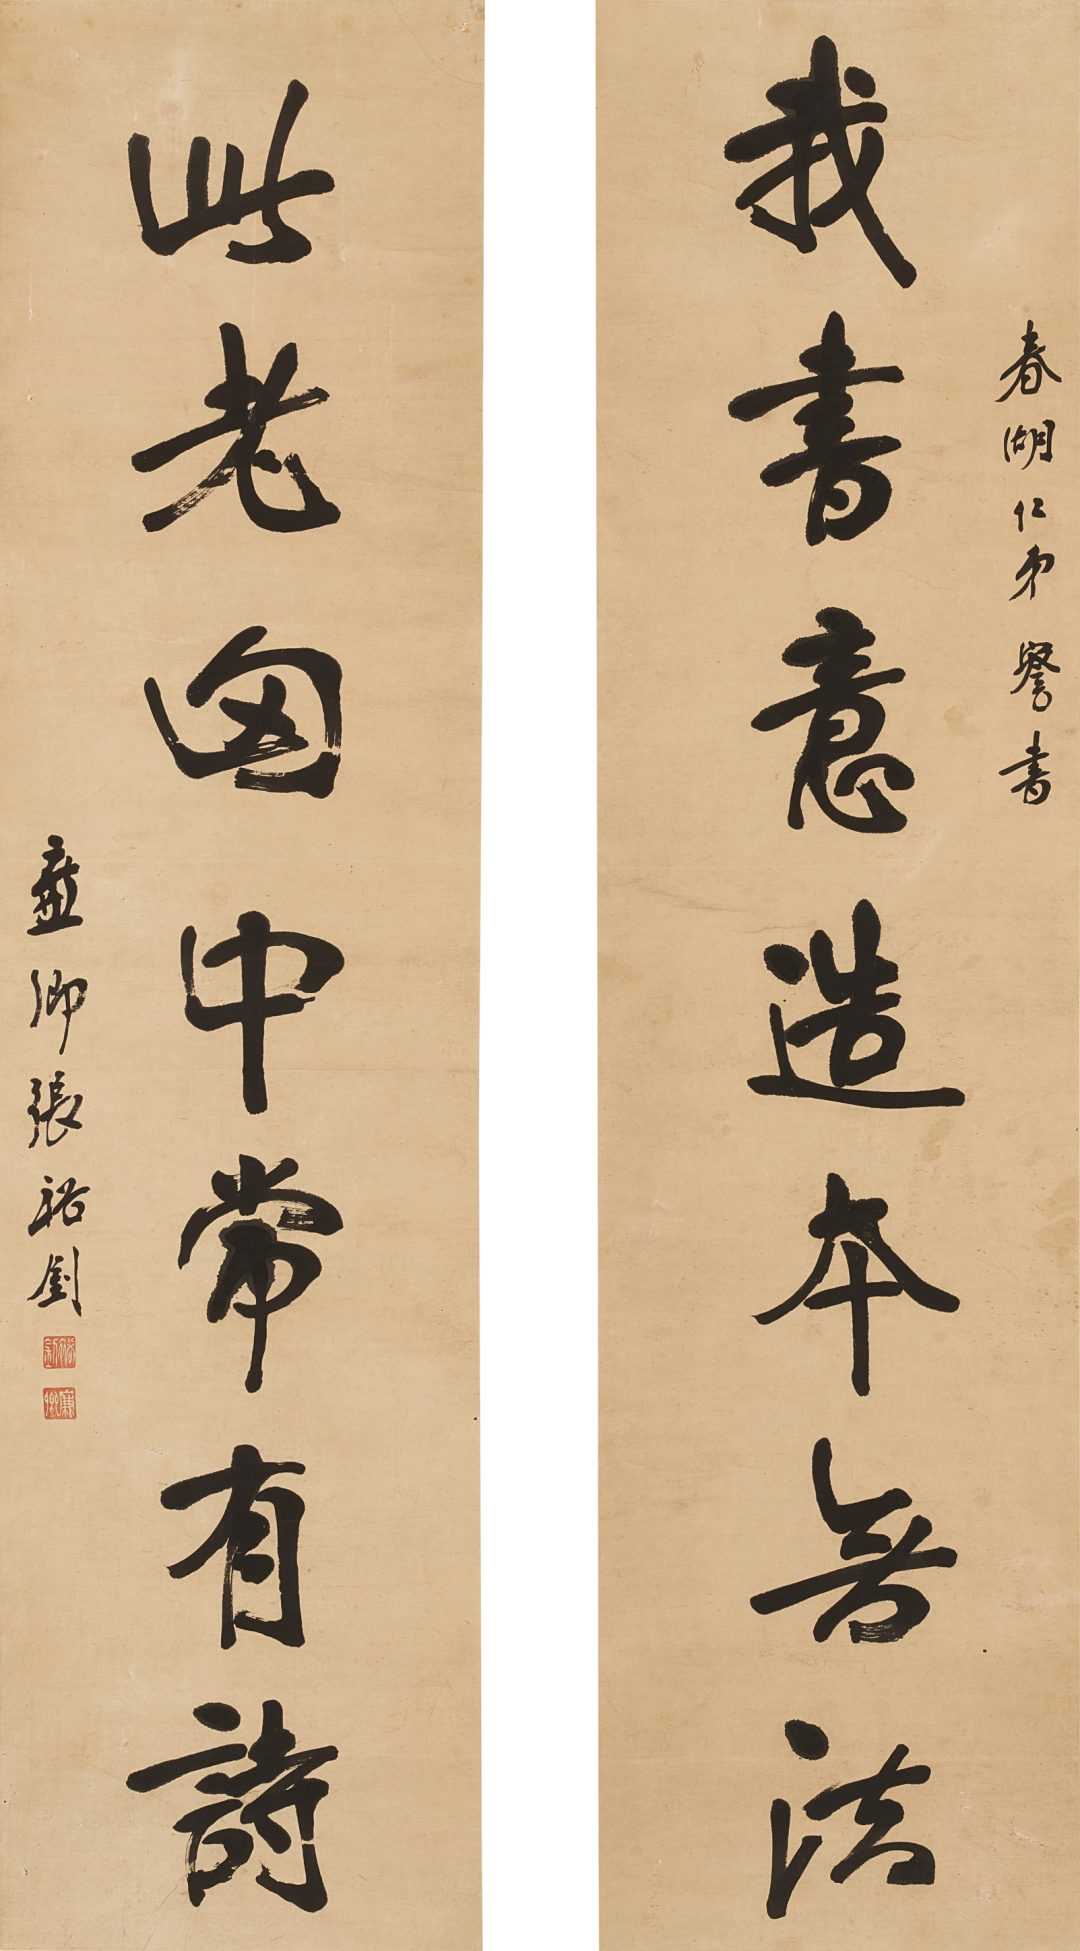 春湖仁弟詧書
我書意造本無法
此老匈中常有詩
廉卿張裕釗
廉卿